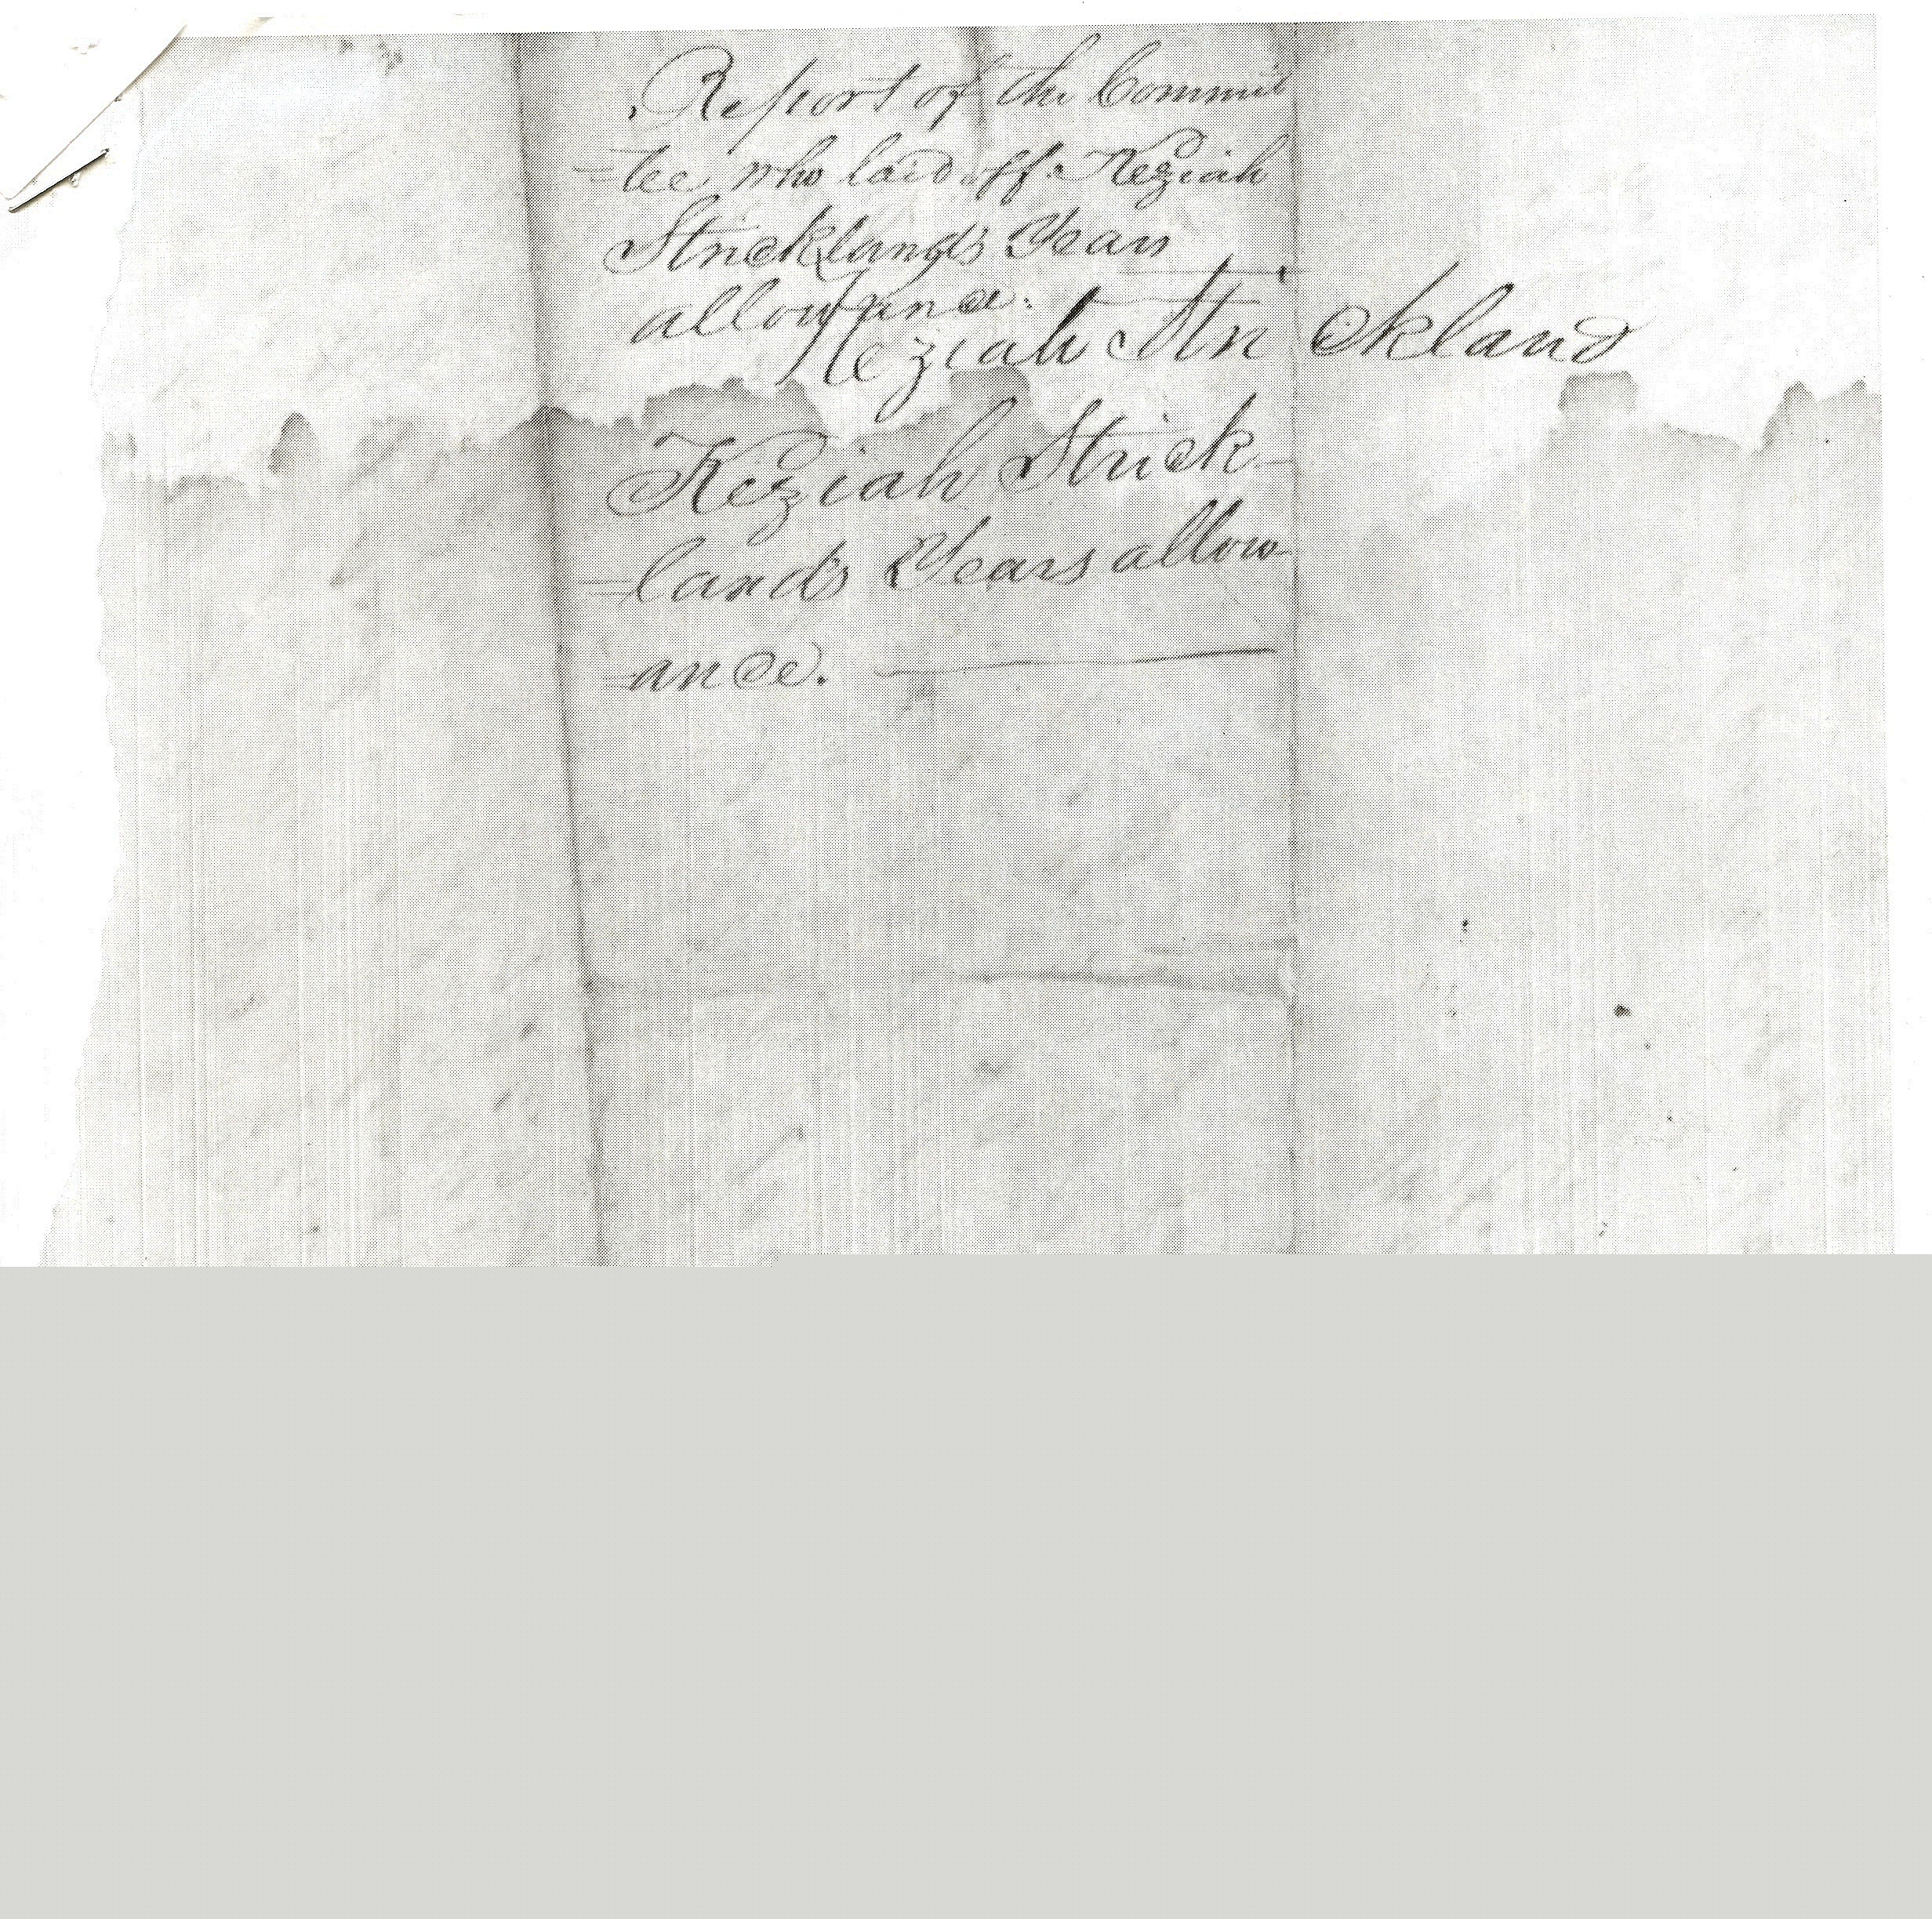 Report of the Commit
=tee who laid off Keziah
Stricklands Years
allowance.
Keziah Strickland
Keziah Strick-
=lands Years allow-
=ance.